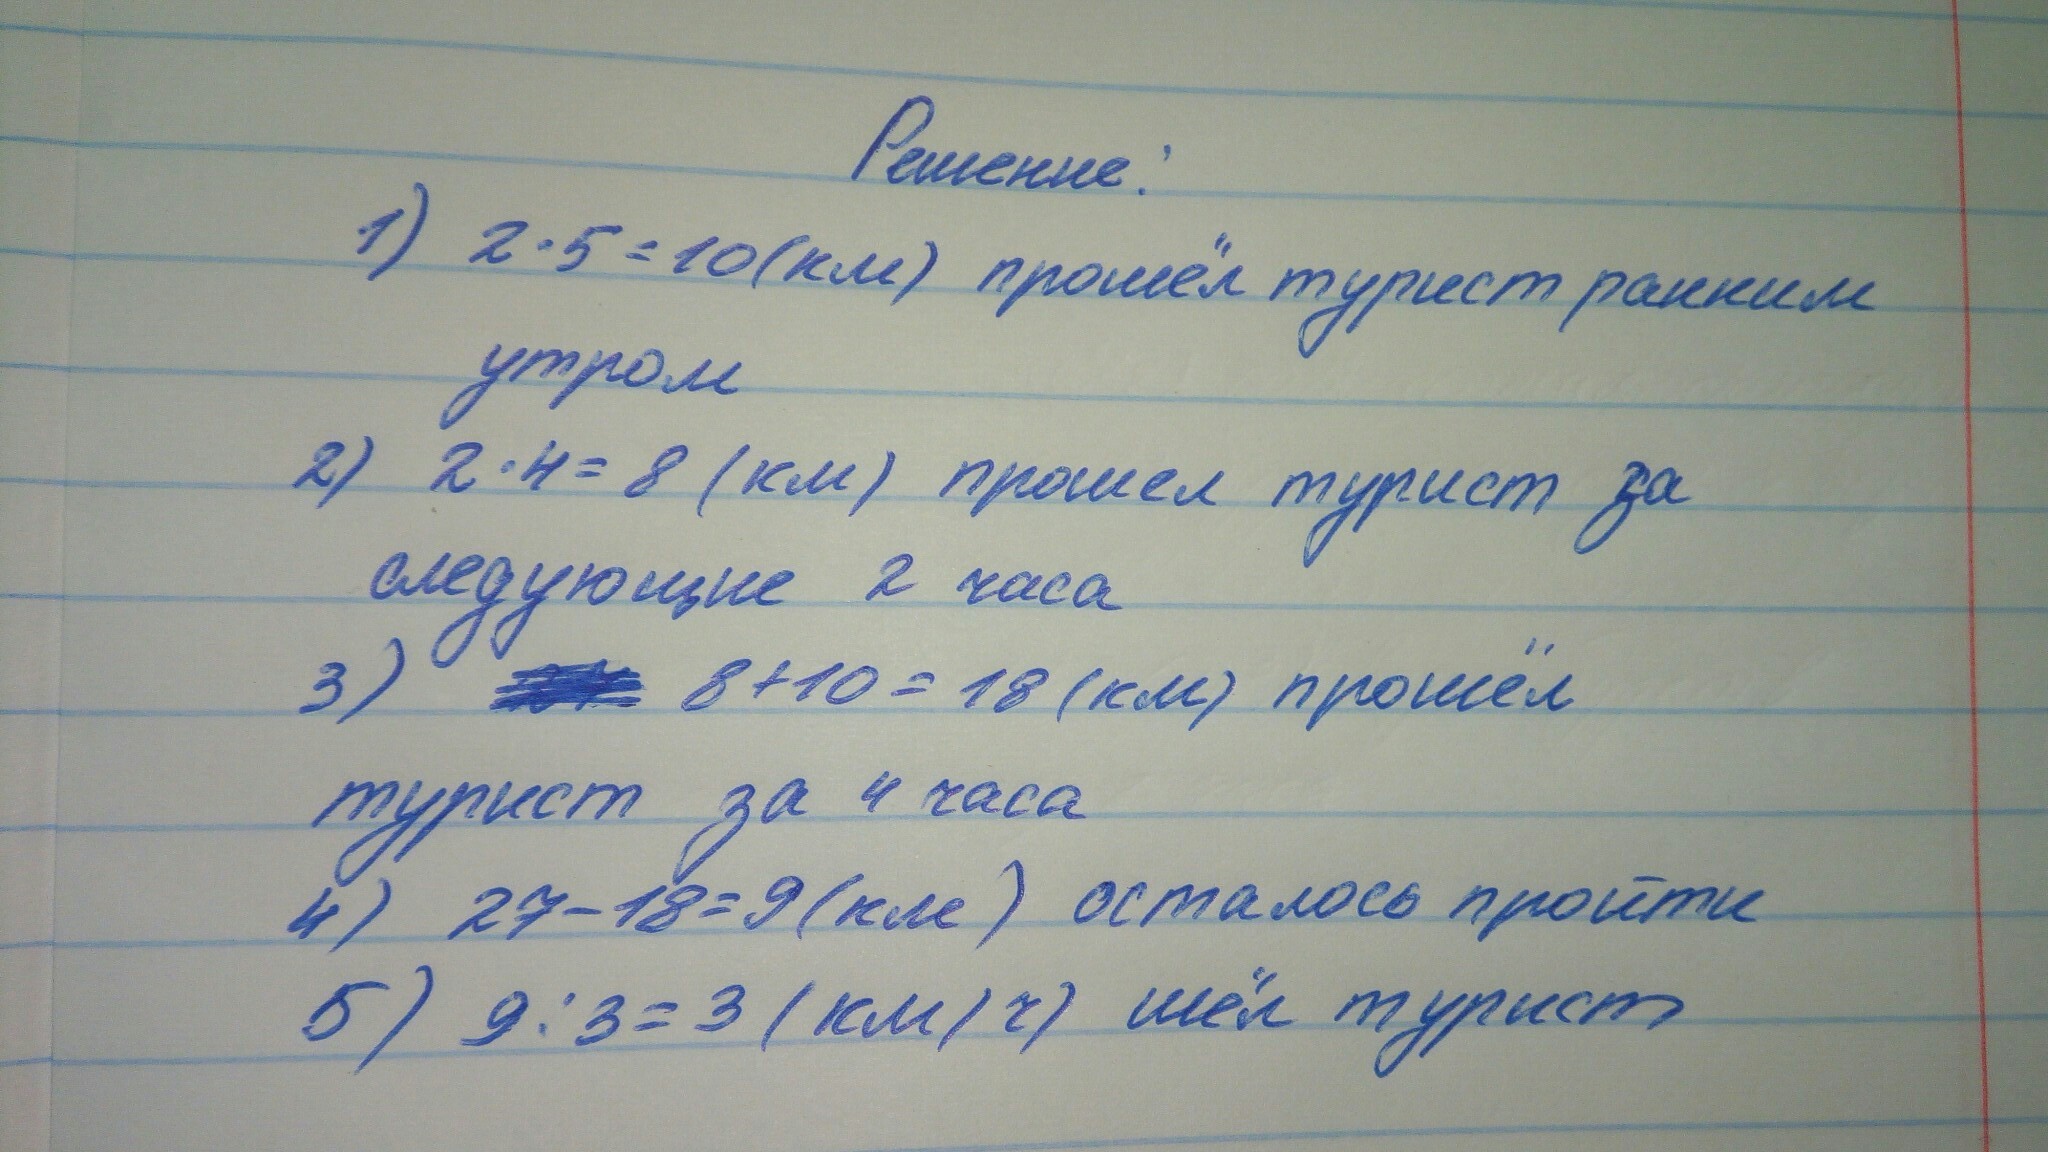 Решение:
1) 2·5=10(км) прошёл турист ранним
утром
2) 2·4=8 (км) прошел турист за
следующие 2 часа
3) 8+10=18(км) прошёл
турист за 4 часа
4) 27-18=9(км) осталось пройти
5) 9:3=3(км/ч) шёл турист